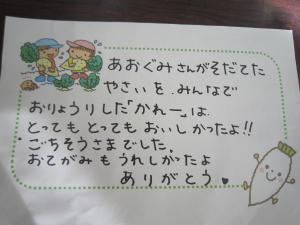 あおぐみさんがそだてた
やさいを みんなで
おりょうりした「かれー」は
とっても とっても おいしかったよ!!
ごちそうさまでした。
おてがみも うれしかったよ
ありがとう